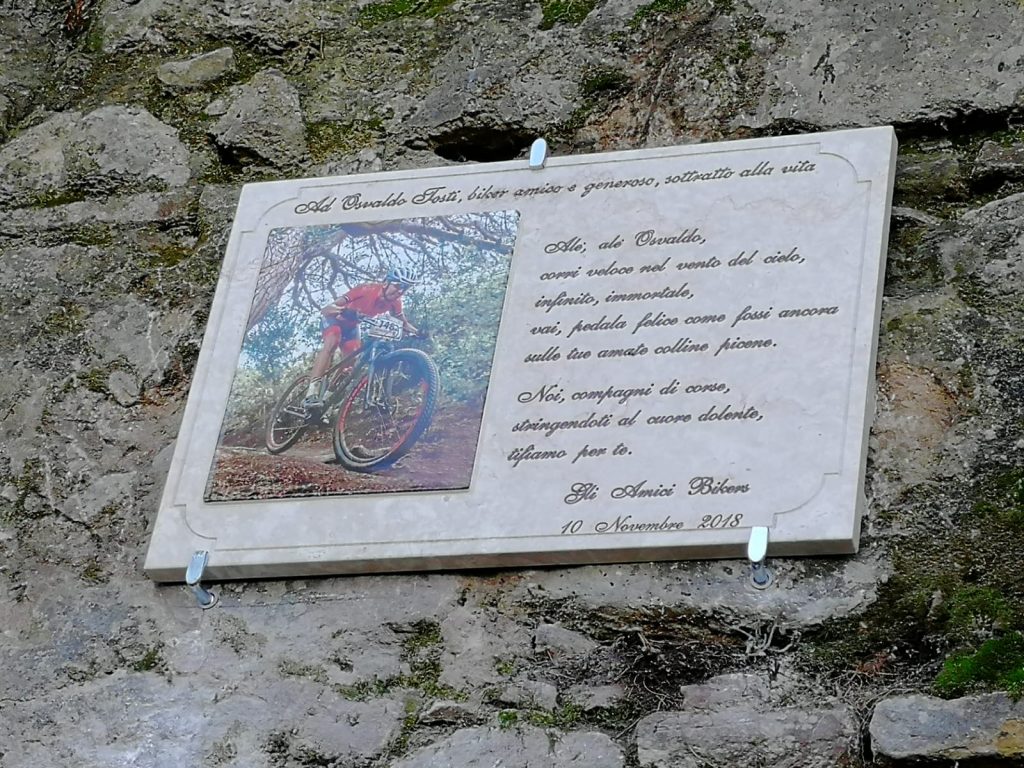 Ad Osvaldo Tosti, biker amico e generoso, sottratto alla vita
Alè, alè Osvaldo,
corri veloce nel vento del cielo,
infinito, immortale,
vai, pedala felice come fossi ancora
sulle tue amate colline picene.
Noi, compagni di corse,
stringendoti al cuore dolente,
tifiamo per te.
Gli Amici Bikers
10 Novembre 2018